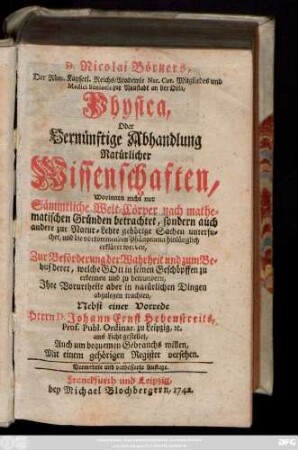 D. Nicolai Börners,
Der Röm. Kayserl. Reichs-Academie Nat. Cur. Mitgliedes und
Medici zur Neustadt an der Orla,
Physica,
Oder
Vernünftige Abhandlung
Natürlicher
Wissenschaften,
Worinnen nicht nur
Sämmtliche Welt-Cörper nach mathe-
matischen Gründen betrachtet, sondern auch
andere zur Natur-Lehre gehörige Sachen untersu-
chet, und die vorkommenden Phänomena hinlänglich
erkläret werden,
Zur Beförderung der Wahrheit und zum Be-
huf derer, welche GOtt in seinen Geschöpffen zu
erkennen und zu bewundern,
Ihre Vorurtheile aber in natürlichen Dingen
abzulegen trachten,
Nebst einer Vorrede
Herrn D. Johann Ernst Hebenstreits,
Prof. Publ. Ordinar. zu Leipzig, ec.
ans Licht gestellet,
Auch um bequemen Gebrauchs willen,
Mit einem gehörigen Register versehen.
Vermehrte und verbesserte Auflage.
Franckfurth und Leipzig,
bey Michael Blochbergern, 1742.